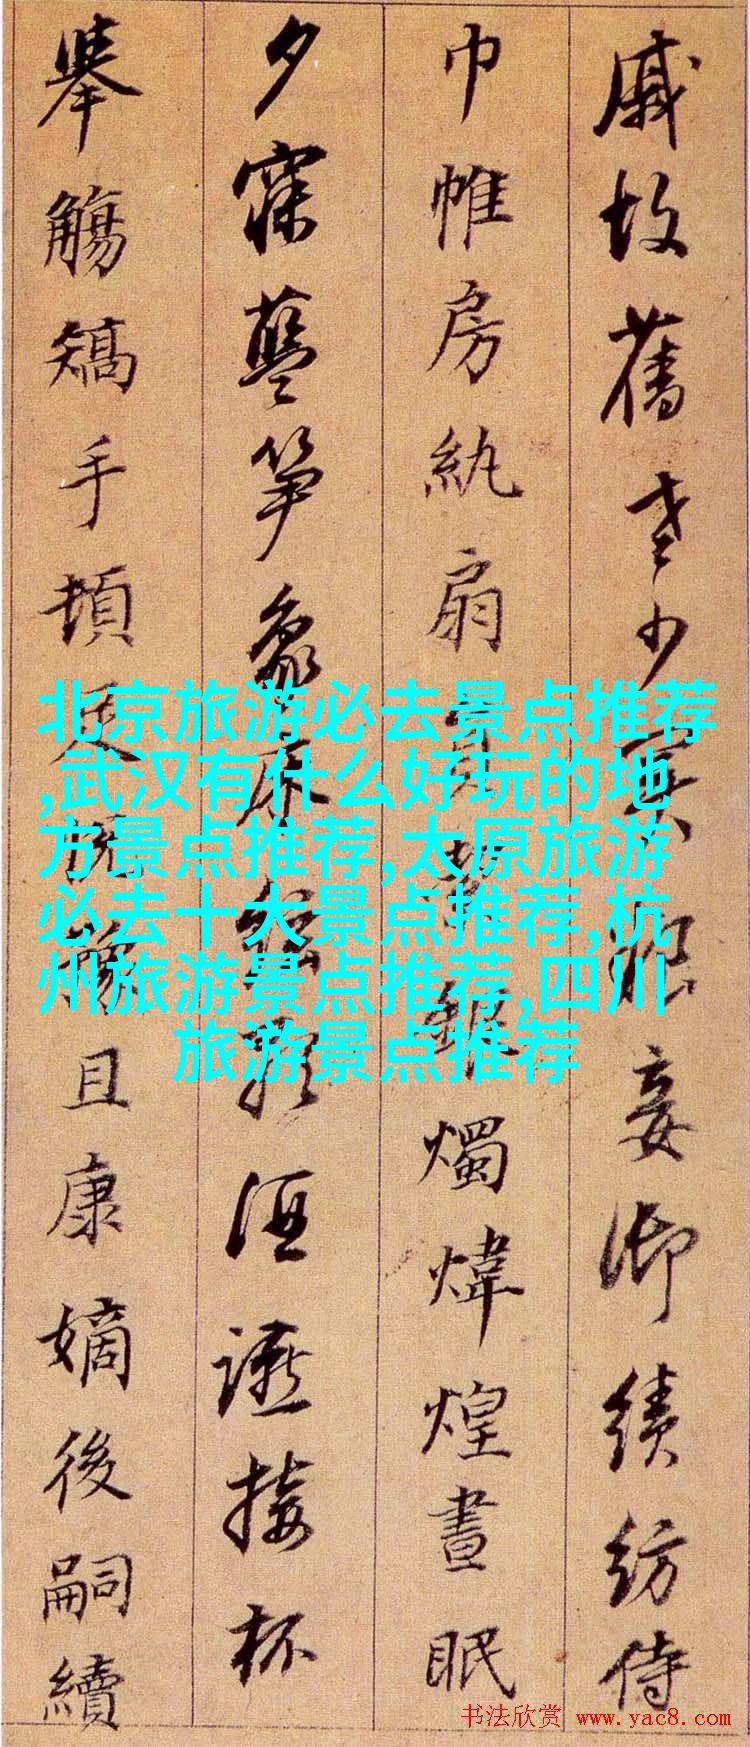 戚故舊老少異粮妾御績紡侍
巾帷房紈扇員潔銀燭煒煌晝眠
夕寐藍笋象床弦歌酒讌接杯
舉觴矯手頓足悅豫且康嫡後嗣續
北京旅游必去景点推荐
,武汉有什么好玩的地
方景点推荐,太原旅游
必去十大景点推荐,杭
州旅游景点推荐,四川
旅游景点推荐
书法欣赏 www.yac8.com